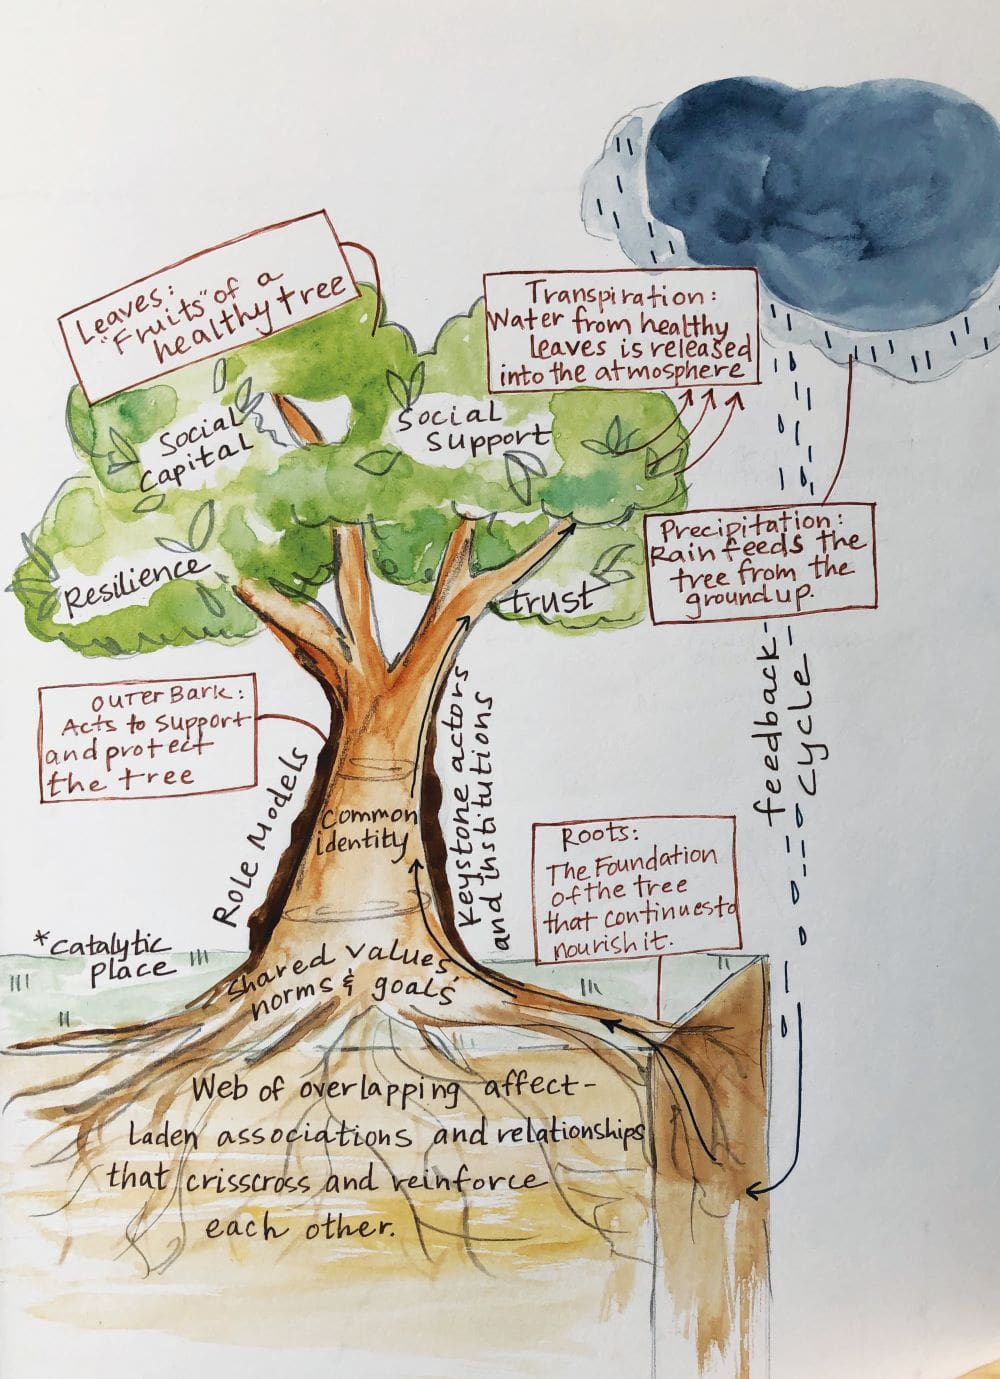 Leaves:
"Fruits" of a
healthy tree
Transpiration:
Water from healthy
leaves is released
into the atmosphere
Social
Capital
Social
Support
Resilience
trust
Precipitation:
Rain feeds the
tree from the
ground up.
feedback-
cycle
OUTER BARK:
Acts to support
and protect
the tree
Role Models
Keystone actors
and institutions
common
identity
Roots:
The Foundation
of the tree
that continues to
nourish it.
*Catalytic
Place
Shared values,
norms & goals
Web of overlapping affect-
Laden associations and relationships
that crisscross and reinforce
each other.